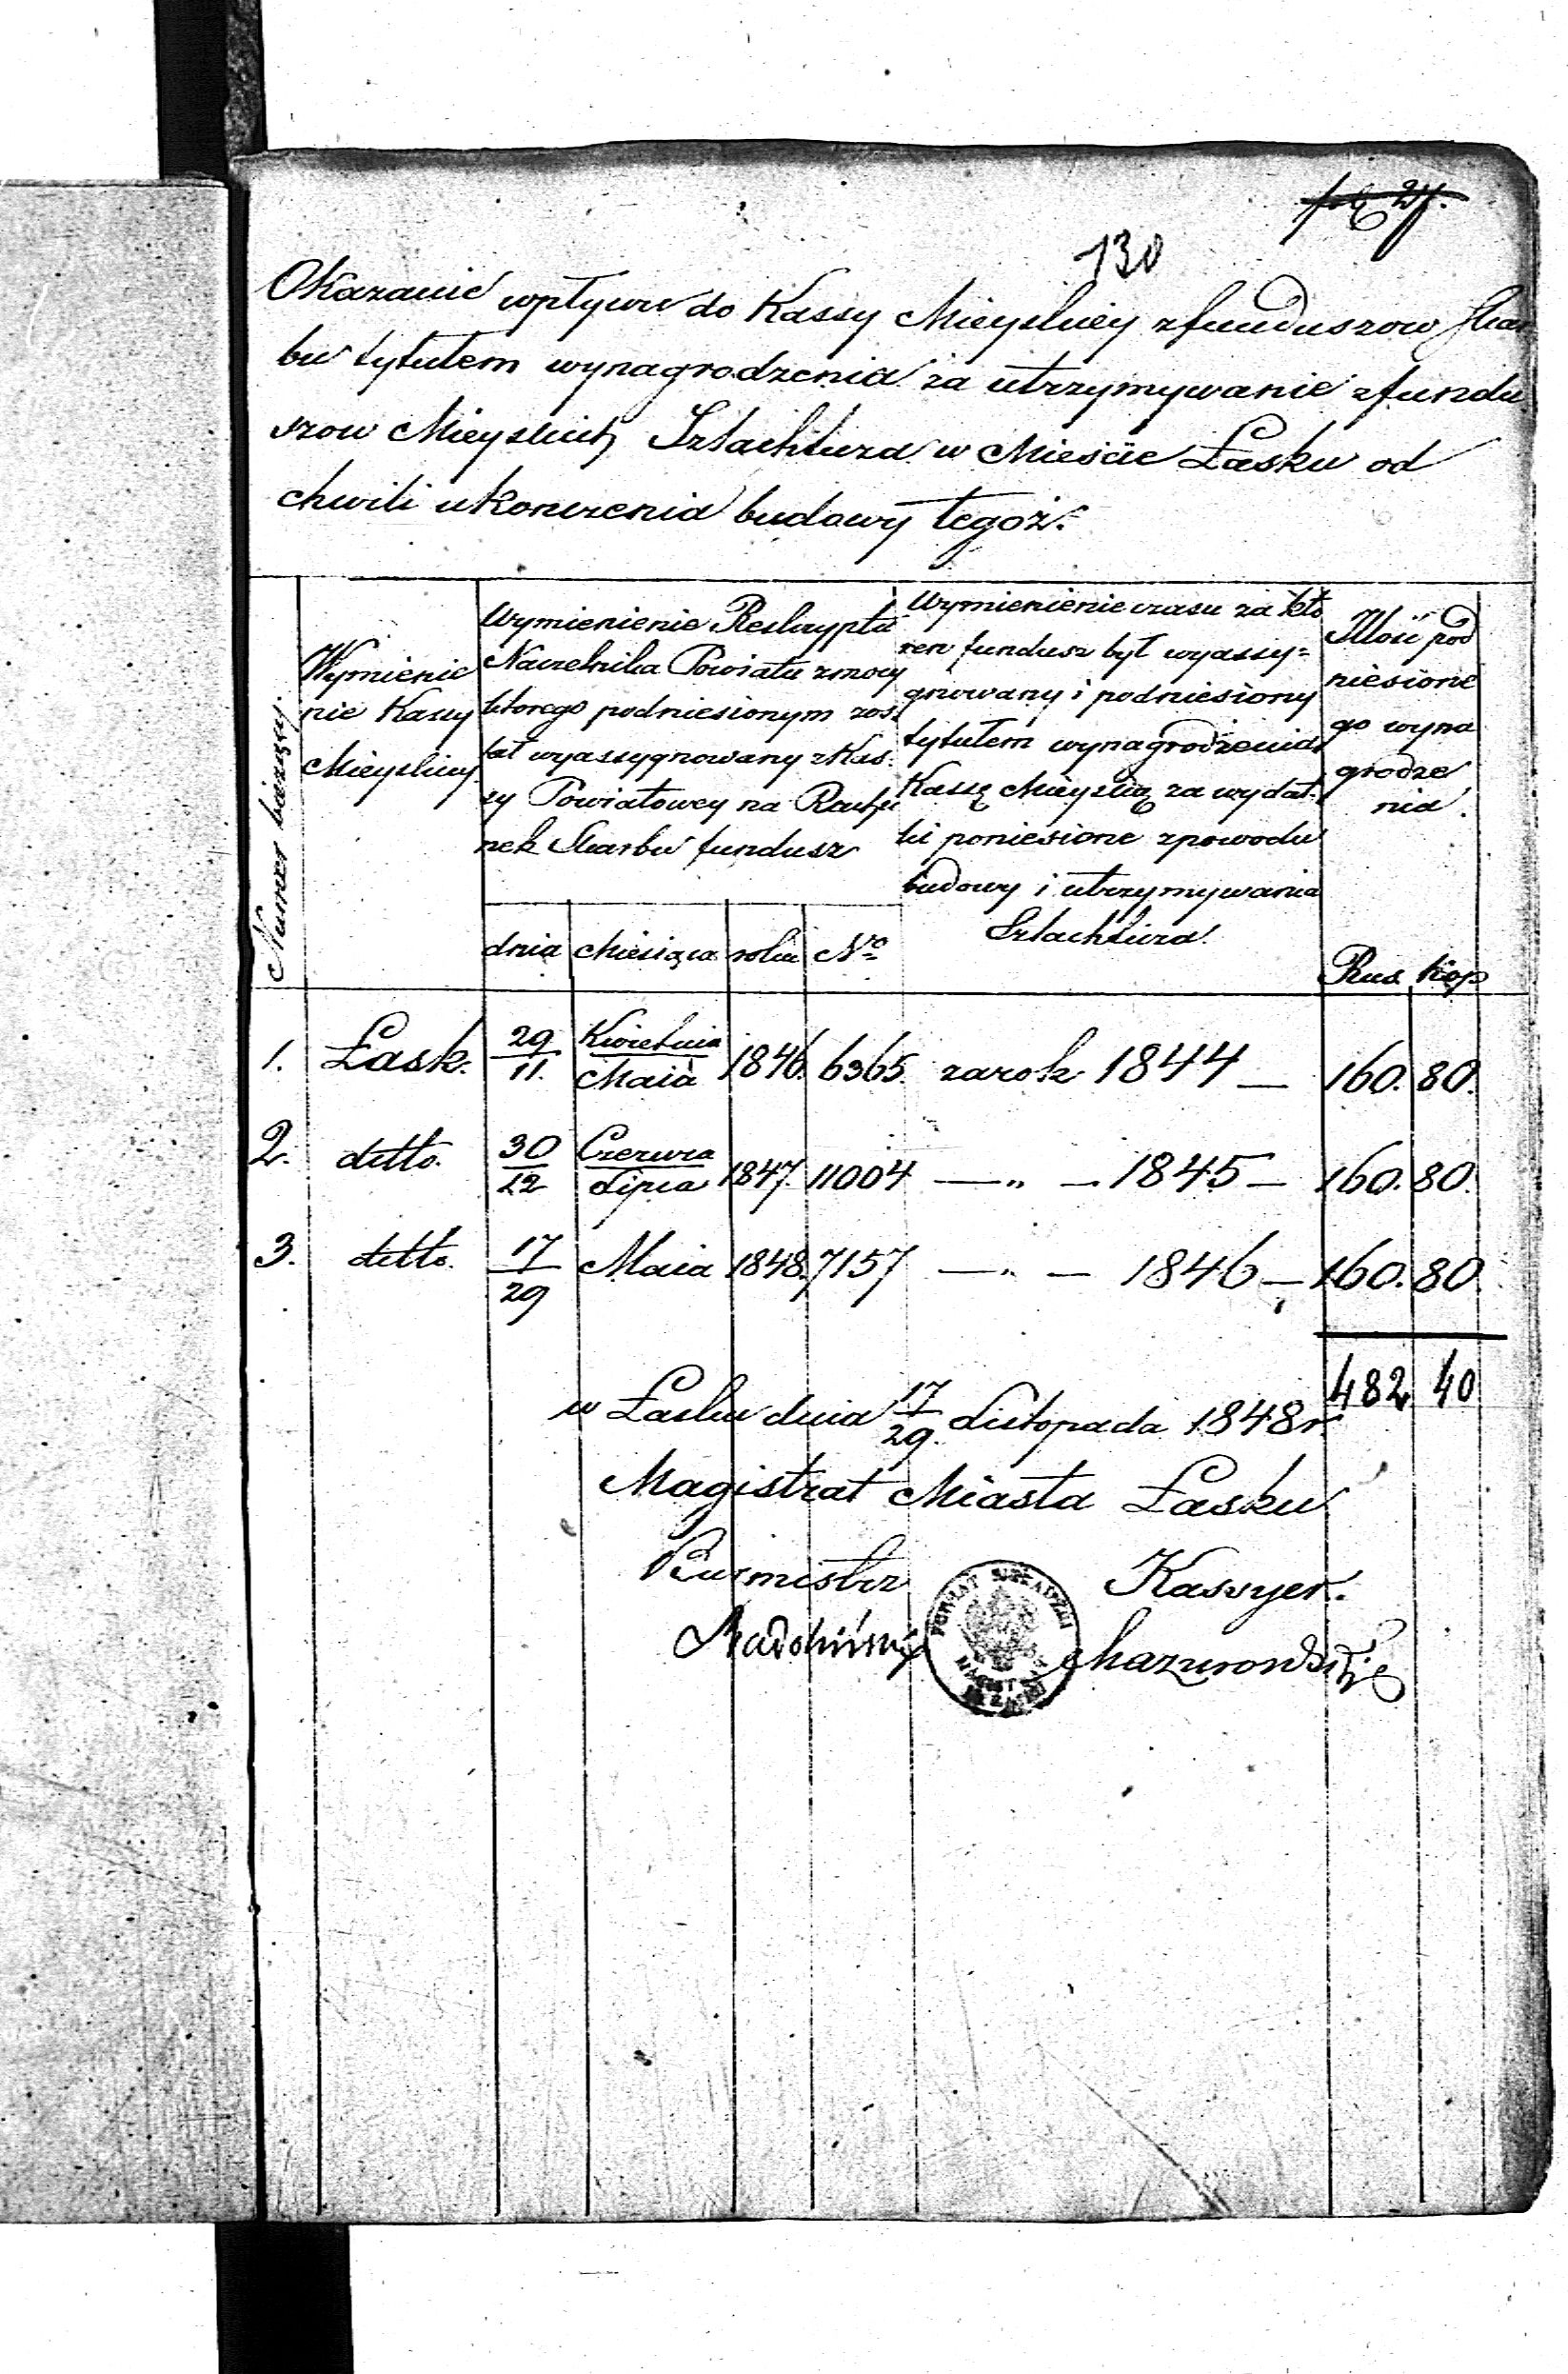 130
Okazanie wpływu do Kassy Mieyskiey z funduszow Skar
bu tytułem wynagrodzenia za utrzymywanie z fundu
szow Mieyskich Szlachtuza w Mieście Łasku od
chwili ukonczenia budowy tegoż.
Numer bieżący
Wymienie
nie Kassy
Mieyskiey
Wymienienie Reskryptu
Naczelnika Powiatu z mocy
ktorego podniesionym zos
tał wyassygnowany z Kas
sy Powiatowey na Rachu
nek Skarbu fundusz
dnia Miesiąca roku No
Wymienienie czasu za kto
ren fundusz był wyassy=
gnowany i podniesiony
tytułem wynagrodzenia
Kassę Mieyską za wydat
ki poniesione z powodu
budowy i utrzymywania
Szlachtuza.
Ilość pod
niesione
go wyna
grodze
nia.
Rus. Kop
1. Łask. 29/11. Kwietnia/Maia 1846. 6365. za rok 1844 — 160. 80.
2. detto. 30/12 Czerwca/Lipca 1847. 11004 — „ — 1845 — 160. 80.
3. detto. 17/29 Maia 1848. 7157 — „ — 1846 — 160. 80.
482 40
w Łasku dnia 17/29. Listopada 1848 r.
Magistrat Miasta Łasku
Burmistrz Kassyer.
Mazurowski